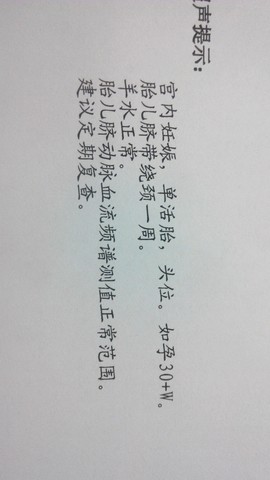 声提示:
宫内妊娠，单活胎，头位。如孕30+W。
胎儿脐带绕颈一周。
羊水正常。
胎儿脐动脉血流频谱测值正常范围。
建议定期复查。